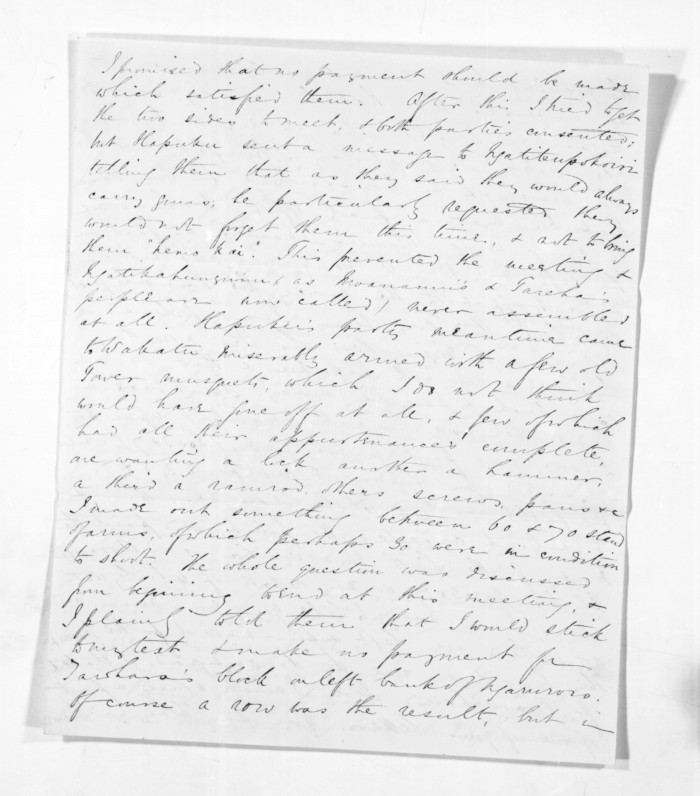 I promised that no payment should be made
which satisfied them. After this I tried to get
the two sides to meet, & both parties consented;
but Hapuku sent a message to Ngatiteupokoiri
telling them that as they said they would always
carry guns, he particularly requested they
would not forget them this time, & not to bring
them "hemo kai". This prevented the meeting &
Ngatikahungunu (as Moananui's & Tareha's
people are now called) never assembled
at all. Hapuku's party meantime came
to Wakatu miserably armed with a few old
Tower musquets, which I do not think
would have gone off at all, & few of which
had all their appurtenances complete,
one wanting a lock another a hammer,
a third a ramrod, others screws, pans &c
I made out something between 60 & 70 stand
of arms, of which perhaps 30 were in condition
to shoot. The whole question was discussed
from begining to end at this meeting, &
I plainly told them that I would stick
to my text & make no payment for
block on left bank of Ngaruroro.
Of course a row was the result, but in